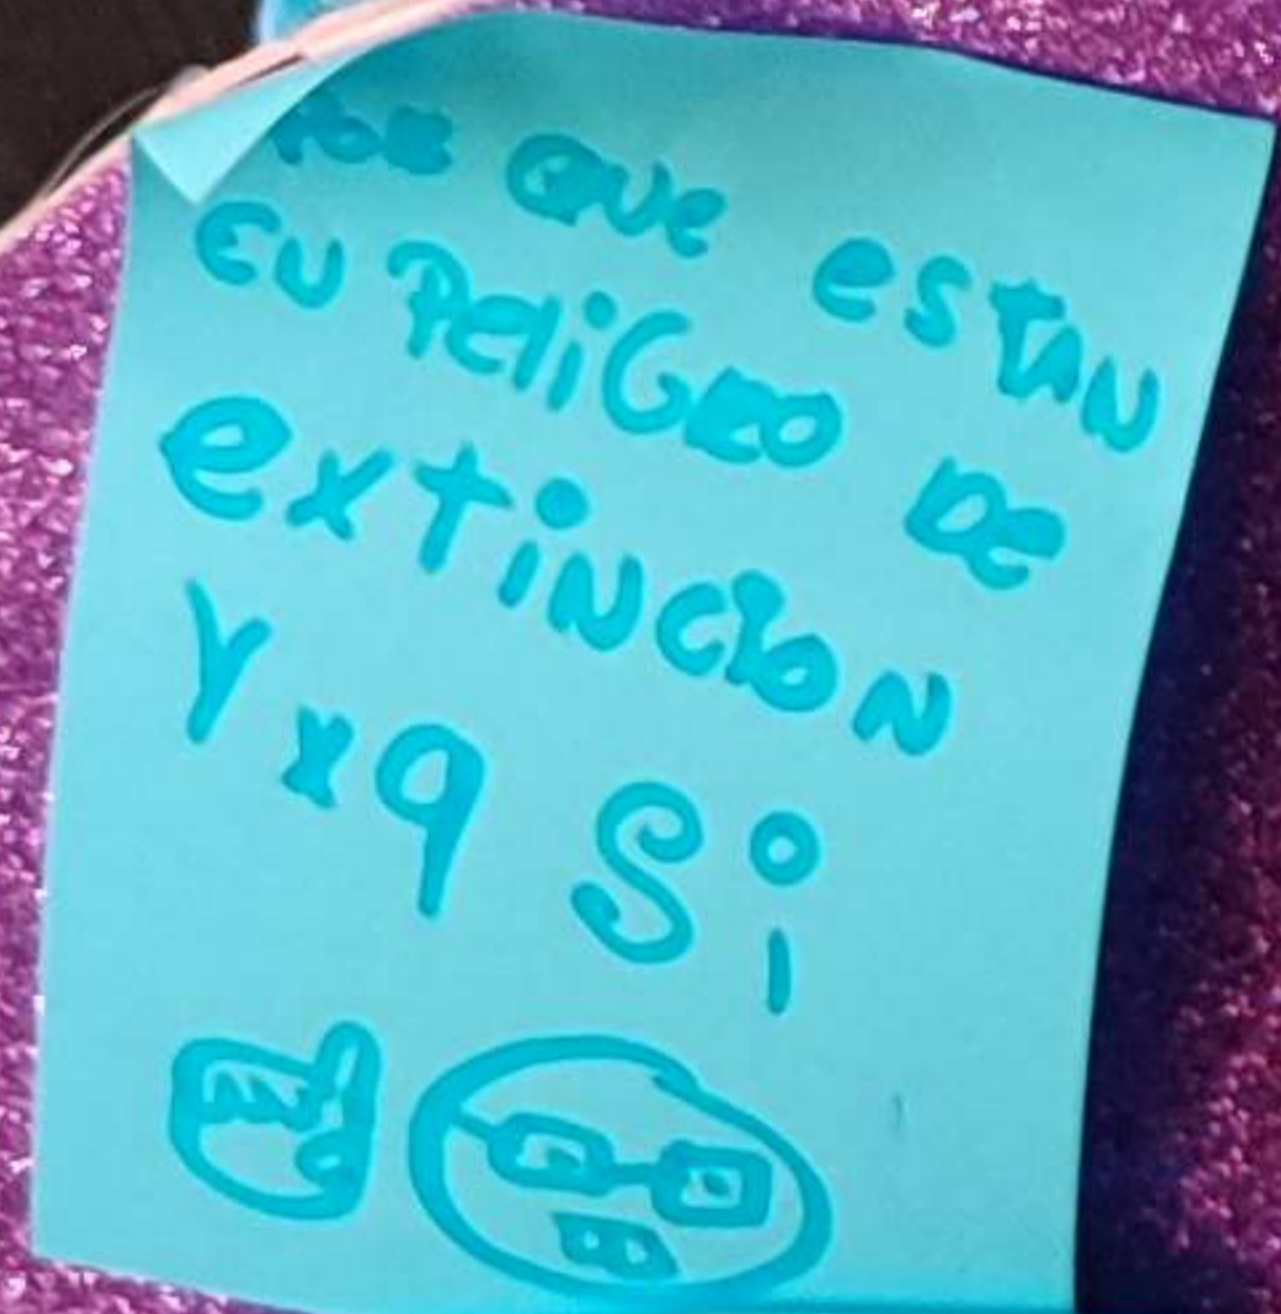 POR QUE ESTAN
EN PELIGRO DE
extincion
Y xq Si